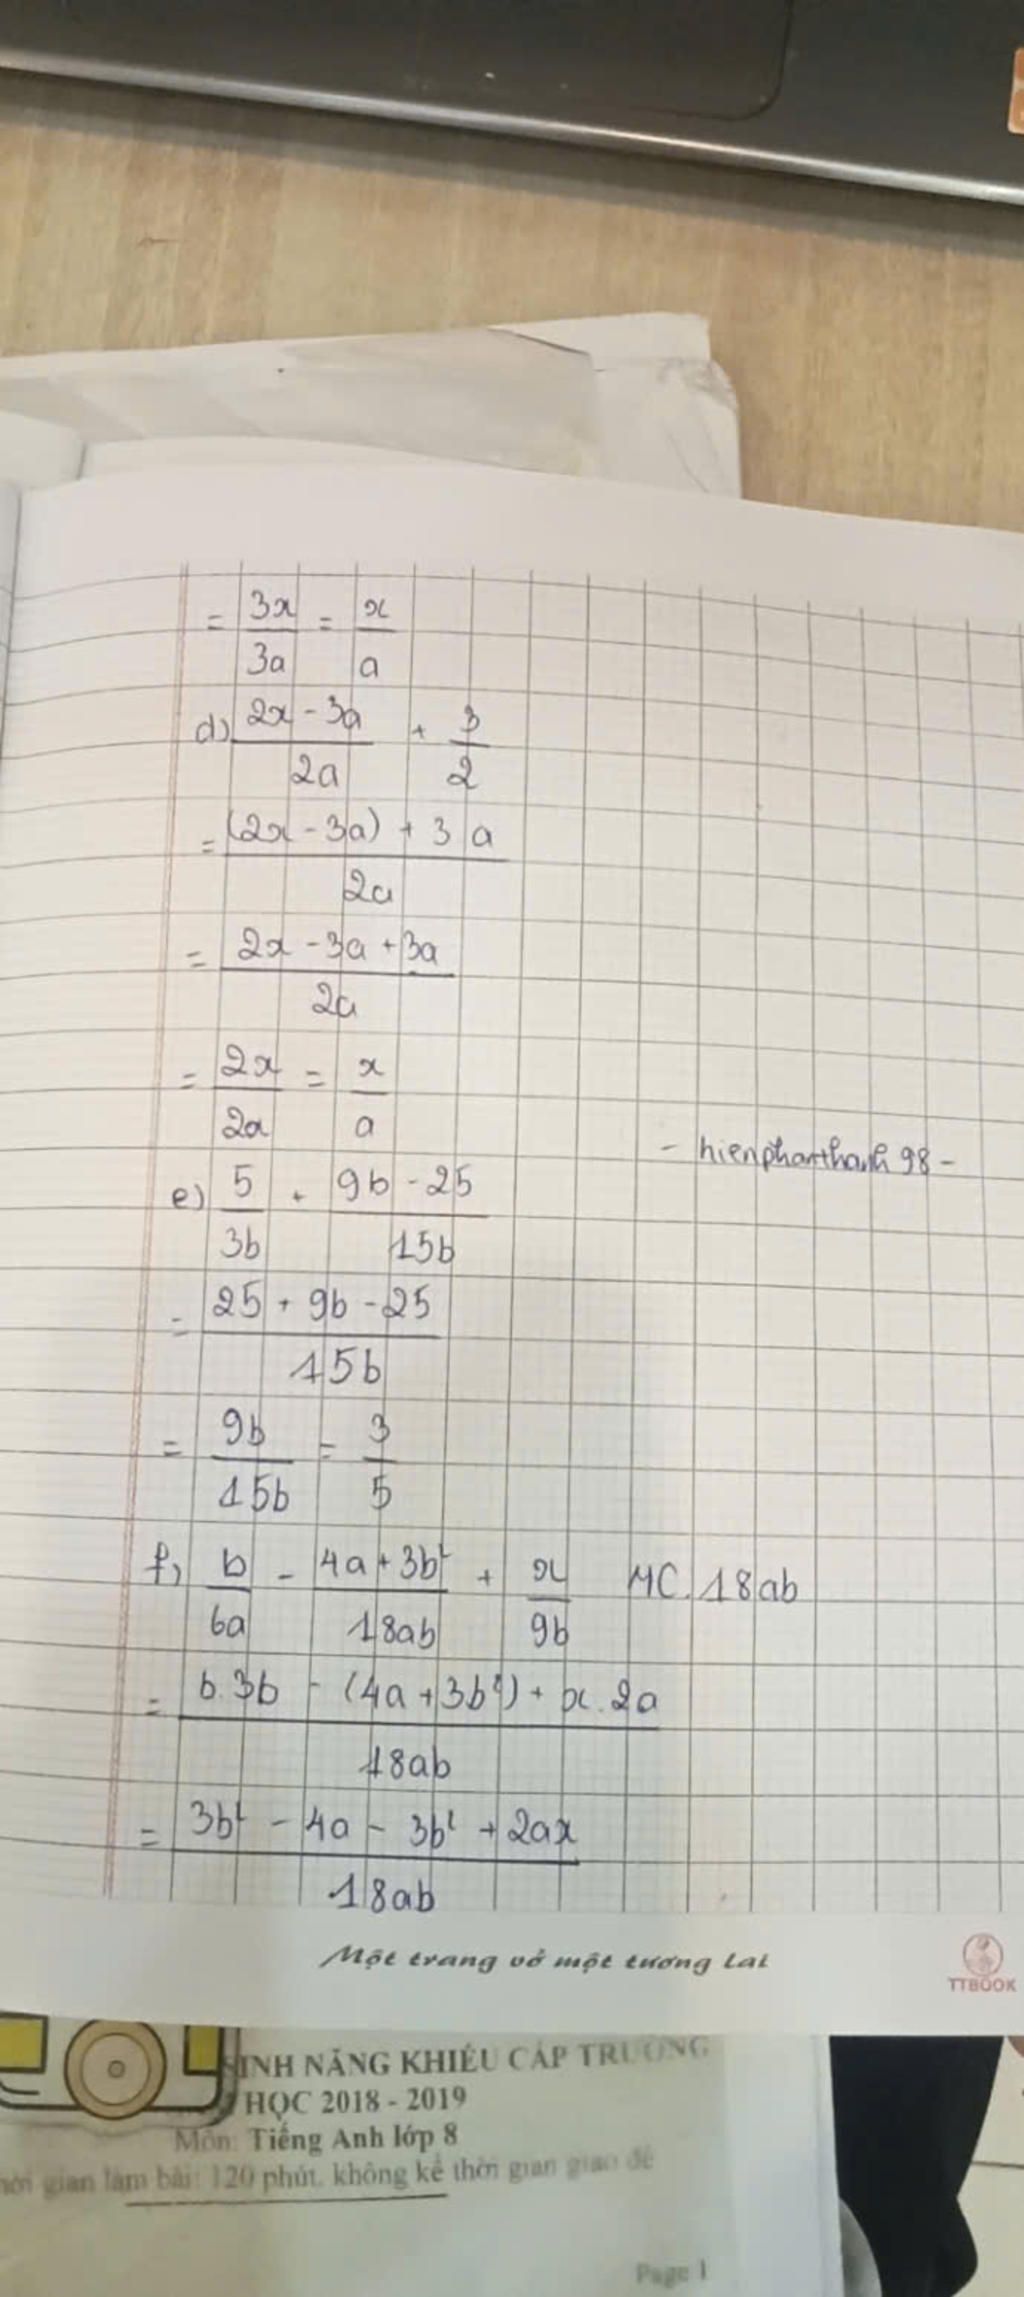 = 3x/3a = x/a
d) (2x - 3a)/2a + 3/2
= ((2x - 3a) + 3a)/2a
= (2x - 3a + 3a)/2a
= 2x/2a = x/a
- hienphanthanh 98 -
e) 5/3b + (9b - 25)/15b
= (25 + 9b - 25)/15b
= 9b/15b = 3/5
f) b/6a - (4a + 3b²)/18ab + x/9b MC. 18ab
= (b.3b - (4a + 3b²) + x.2a)/18ab
= (3b² - 4a - 3b² + 2ax)/18ab
Một trang vở một tương lai
TTBOOK
SINH NĂNG KHIẾU CẤP TRƯỜNG
HỌC 2018 - 2019
Môn: Tiếng Anh lớp 8
gian làm bài: 120 phút, không kể thời gian giao đề
Page 1